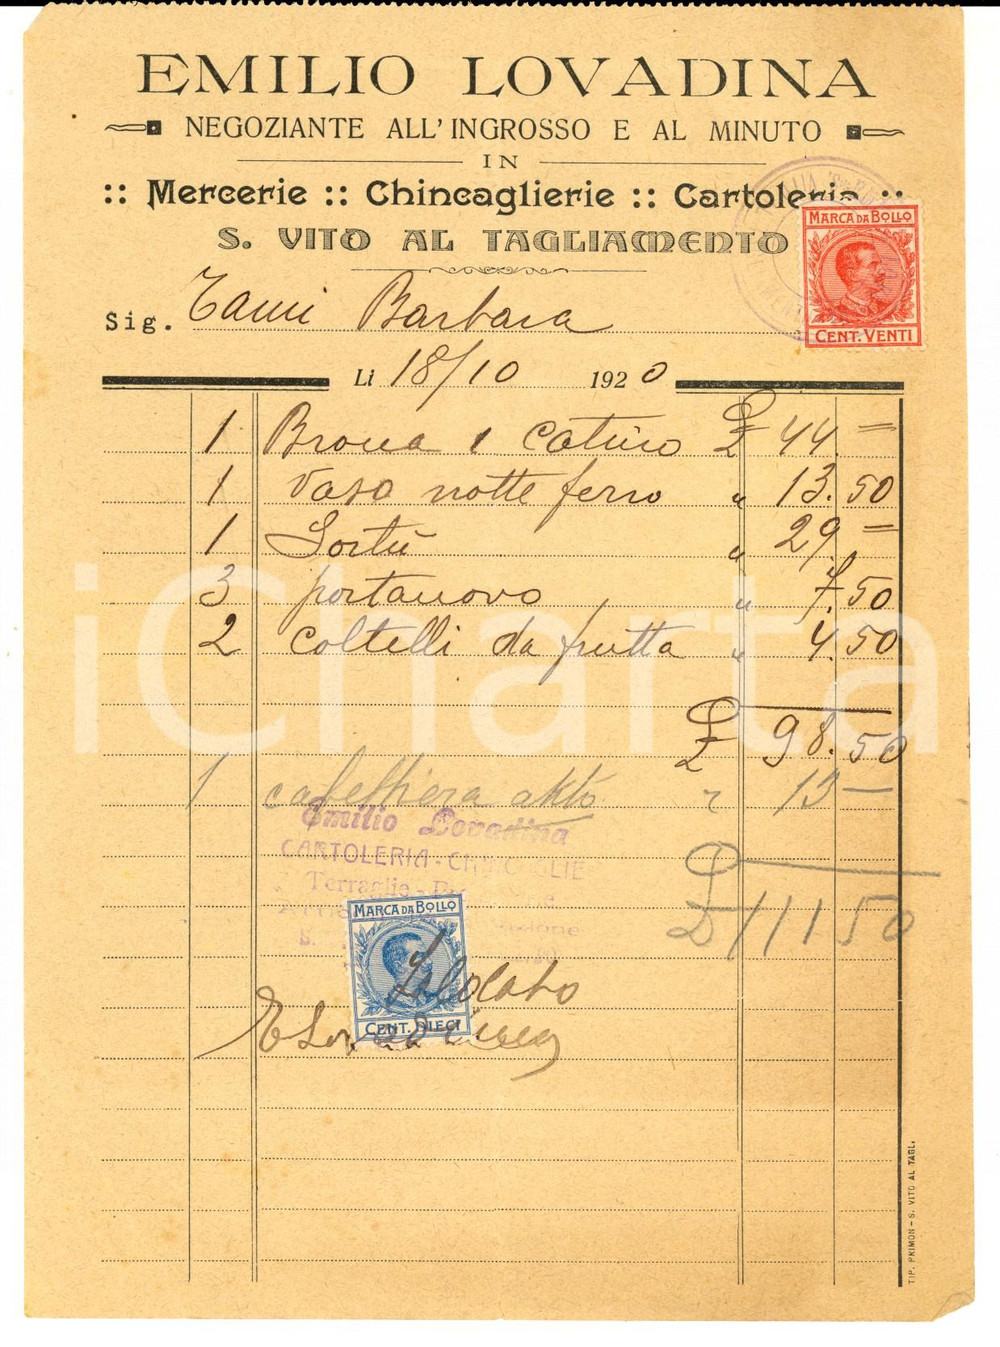 EMILIO LOVADINA
NEGOZIANTE ALL'INGROSSO E AL MINUTO
IN
:: Mercerie :: Chincaglierie :: Cartoleria ::
S. VITO AL TAGLIAMENTO
MARCA DA BOLLO
CENT. VENTI
Sig. Tami Barbara
Li 18/10 1920
1 Broua e catino £ 44.=
1 Vaso notte ferro " 13.50
1 Sortù " 29.=
3 portauovo " 7.50
2 coltelli da frutta " 4.50
£ 98.50
1 caffettiera " 13 —
Emilio Lovadina
CARTOLERIA - CHINCAGLIE
Terraglie
£ 111.50
MARCA DA BOLLO
CENT. DIECI
S.
Saldato
E Lovadina
TIP. PRIMON - S. VITO AL TAGL.
iCharta